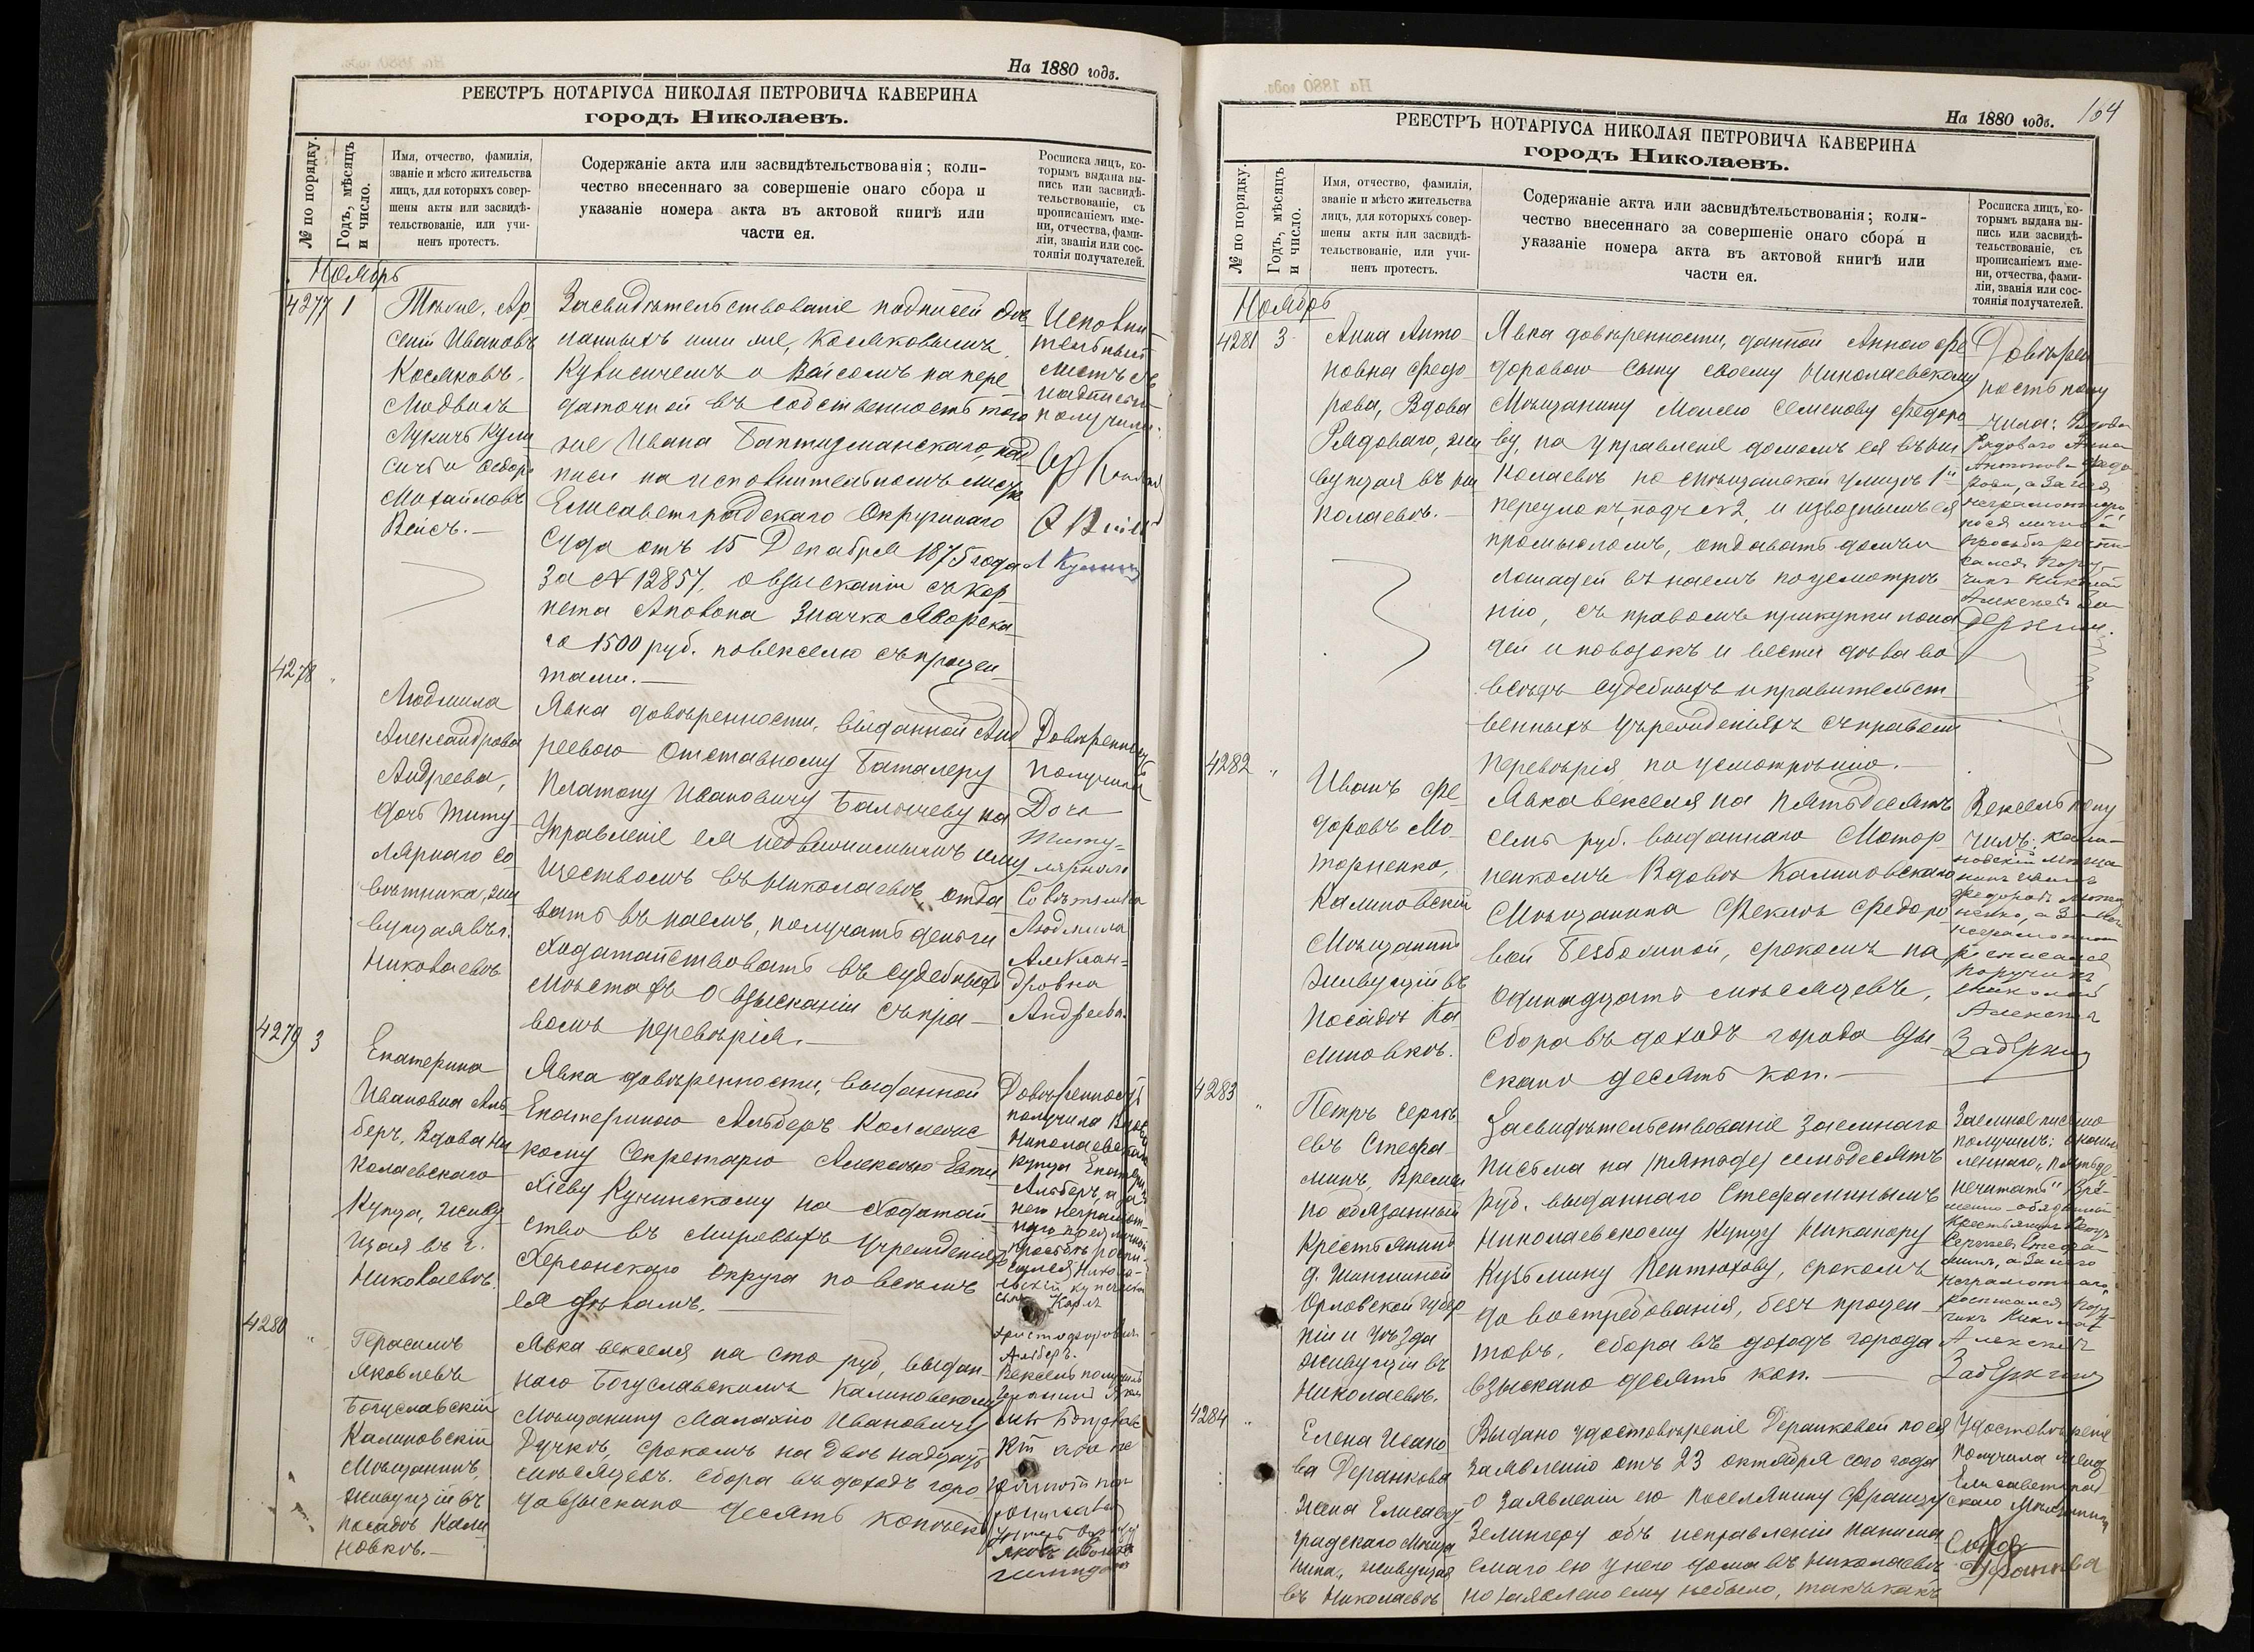 На 1880 годъ.
РЕЕСТРЪ НОТАРІУСА НИКОЛАЯ ПЕТРОВИЧА КАВЕРИНА
городъ Николаевъ.
№ по порядку.
Годъ, мѣсяцъ
и число.
Имя, отчество, фамилія,
званіе и мѣсто жительства
лицъ, для которыхъ совер-
шены акты или засвидѣ-
тельствованіе, или учи-
ненъ протестъ.
Содержаніе акта или засвидѣтельствованія; коли-
чество внесеннаго за совершеніе онаго сбора и
указаніе номера акта въ актовой книгѣ или
части ея.
Росписка лицъ, ко-
торымъ выдана вы-
пись или засвидѣ-
тельствованіе, съ
прописаніемъ име-
ни, отчества, фами-
ліи, званія или сос-
тоянія получателей.
Ноябрь
4277
1
Ар
сеній Ивановъ
Косяковъ,
Людвигъ
Лукичъ Кули
сичъ и Федоръ
Михайловъ
Вейсъ.—
Засвидѣтельствованіе подписей сдѣ
ланныхъ ими же, Косяковымъ,
Кулисичемъ и Вейсомъ на пере
даточной въ собственность того
же Ивана Баптизманскаго, над
писи на исполнительномъ листѣ
Елисаветградскаго Окружнаго
Суда отъ 15 Декабря 1875 года
за № 12857, о взысканіи съ Кор
нета Аполона Значко Яворска
го 1500 руб. по векселю съ процен
тами.—
Исполни-
тельный
листъ съ
надписью
получили:
4278
"
Людмила
Александрова
Андреева,
дочь Титу
лярнаго Со
вѣтника, жи
вущая въ г.
Николаевѣ
Явка довѣренности, выданной Анд
реевою Отставному Баталеру
Платону Ивановичу Балычеву на
Управленіе ея недвижимымъ иму
ществомъ въ Николаевѣ, отда
вать въ наемъ, получать деньги
ходатайствовать въ судебныхъ
мѣстахъ о взысканіи съ пра—
вомъ перевѣрія.—
Довѣренность
получила
Дочь
Титу=
лярнаго
Совѣтника
Людмила
Алексан=
дровна
Андреева.
4279
3
Екатерина
Ивановна Аль
беръ, Вдова Ни
колаевскаго
Купца, живу
щая въ г.
Николаевѣ.
Явка довѣренности, выданной
Екатериною Альберъ Коллежс
кому Секретарю Алексѣю Евти
хіеву Кучинскому на ходатай
ство въ Мировыхъ Учрежденіяхъ
Херсонскаго Округа по всѣмъ
ея дѣламъ.
Довѣренность
получила Вдова
Николаевскаго
купца Екатерина
Альберъ, а за
нее неграмот-
ную по ея личной
просьбѣ роспи-
сался Никола-
евскій купеческій
сынъ Карлъ
Христофоровичъ
Альберъ.
4280
"
Герасимъ
Яковлевъ
Богуславскій
Калиновскій
Мѣщанинъ,
живущій въ
посадѣ Кали
новкѣ.—
Явка векселя на сто руб., выдан-
наго Богуславскимъ Калиновскому
Мѣщанину Малахію Ивановичу
Дучкѣ, срокомъ на двѣнадцать
мѣсяцевъ. Сбора въ доходъ горо
да взыскано десять копѣекъ
Вексель получилъ
На 1880 годъ.
104
РЕЕСТРЪ НОТАРІУСА НИКОЛАЯ ПЕТРОВИЧА КАВЕРИНА
городъ Николаевъ.
№ по порядку.
Годъ, мѣсяцъ
и число.
Имя, отчество, фамилія,
званіе и мѣсто жительства
лицъ, для которыхъ совер-
шены акты или засвидѣ-
тельствованіе, или учи-
ненъ протестъ.
Содержаніе акта или засвидѣтельствованія; коли-
чество внесеннаго за совершеніе онаго сбора и
указаніе номера акта въ актовой книгѣ или
части ея.
Росписка лицъ, ко-
торымъ выдана вы-
пись или засвидѣ-
тельствованіе, съ
прописаніемъ име-
ни, отчества, фами-
ліи, званія или сос-
тоянія получателей.
Ноябрь
4281
3
Анна Анто-
новна Федо
рова, Вдова
Рядоваго, жи
вущая въ Ни
колаевѣ.—
Явка довѣренности, данной Анною Фе
доровою сыну своему Николаевскому
Мѣщанину Моисею Семенову Федоро
ву, на управленіе домомъ ея въ Ни
колаевѣ по Мѣщанской улицѣ 1й
переулокъ, подъ № 2, и извознымъ ея
промысломъ, отдавать домъ и
лошадей въ наемъ по усмотрѣ
нію, съ правомъ прикупки лоша
дей и повозокъ и вести дѣла во
всѣхъ судебныхъ и правительст
венныхъ учрежденіяхъ съ правом
перевѣрія по усмотрѣнію.—
Довѣрен
ность полу
чила: Вдова
Рядоваго Анна
Антонова Федо
рова, а за нея
неграмотную,
по ея личной
просьбѣ роспи-
сался Пору-
чикъ Николай
Алексѣевъ За-
держкинъ.
4282
"
Иванъ Фе-
доровъ Мо
торненко,
Калиновскій
Мѣщанинъ
живущій въ
Посадѣ Ка
линовкѣ.
Явка векселя на пятьдесятъ
семь руб. выданнаго Мотор
ненкомъ Вдовѣ Калиновскаго
Мѣщанина Феклѣ Федоро
вой Безболиной, срокомъ на
одинадцать мѣсяцевъ,
Сбора въ доходъ города взы
скано десять коп.—
Вексель полу
чилъ: Кали-
новскій Мѣща
нинъ Иванъ
росписался
Поручикъ
Николай
Алексѣевъ
Задержкинъ
4283
"
Петръ Сергѣ
евъ Стефа
минъ, Времен
но обязанный
Крестьянинъ
Орловской Губер
ніи и Уѣзда
живущій въ
Николаевѣ.
Засвидѣтельствованіе Заемнаго
письма на (пятьде) семьдесятъ
руб. выданнаго Стефаминымъ
Николаевскому Купцу Никанору
Кузьмину Пентюхову, срокомъ
до востребованія, безъ процен
товъ. Сбора въ доходъ города
взыскано десять коп.—
Заемное письмо
получилъ:
нечитать" Вре-
менно-обязанный
Крестьянинъ Петръ
Сергѣевъ Стефа-
минъ, а за него
неграмотнаго,
росписался Пору-
чикъ Николай
Алексѣевъ
Задержкинъ
4284
"
Елена Ивано
ва Деранкова
Жена Елисавет
градскаго Мѣща
нина, живущая
въ Николаевѣ
Выдано удостовѣреніе Деранковой по ея
заявленію отъ 23 октября сего года
о заявленіи ею поселянину Францу
Зелингеру объ исправленіи нанима
емаго ею у него дома въ Николаевѣ
но заявлено ему небыло, такъ какъ
Удостовѣреніе
получила жена
Елисаветград
скаго Мѣщанина